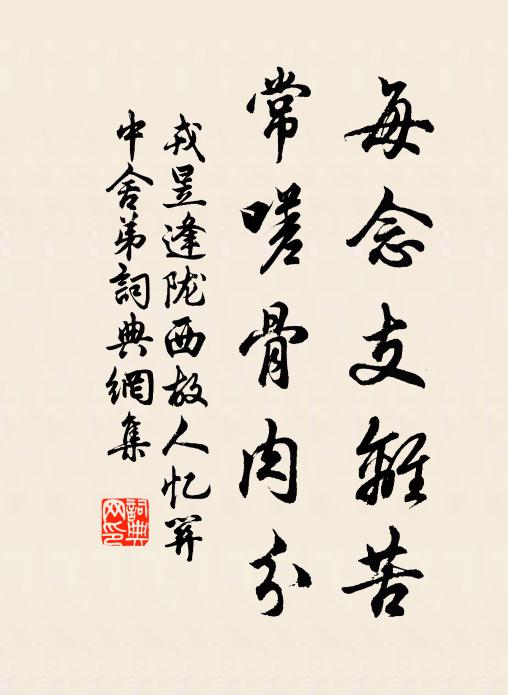 每念支離苦
常嗟骨肉分
戎昱逢陇西故人忆关
中舍弟詞典網集
詞典
网印